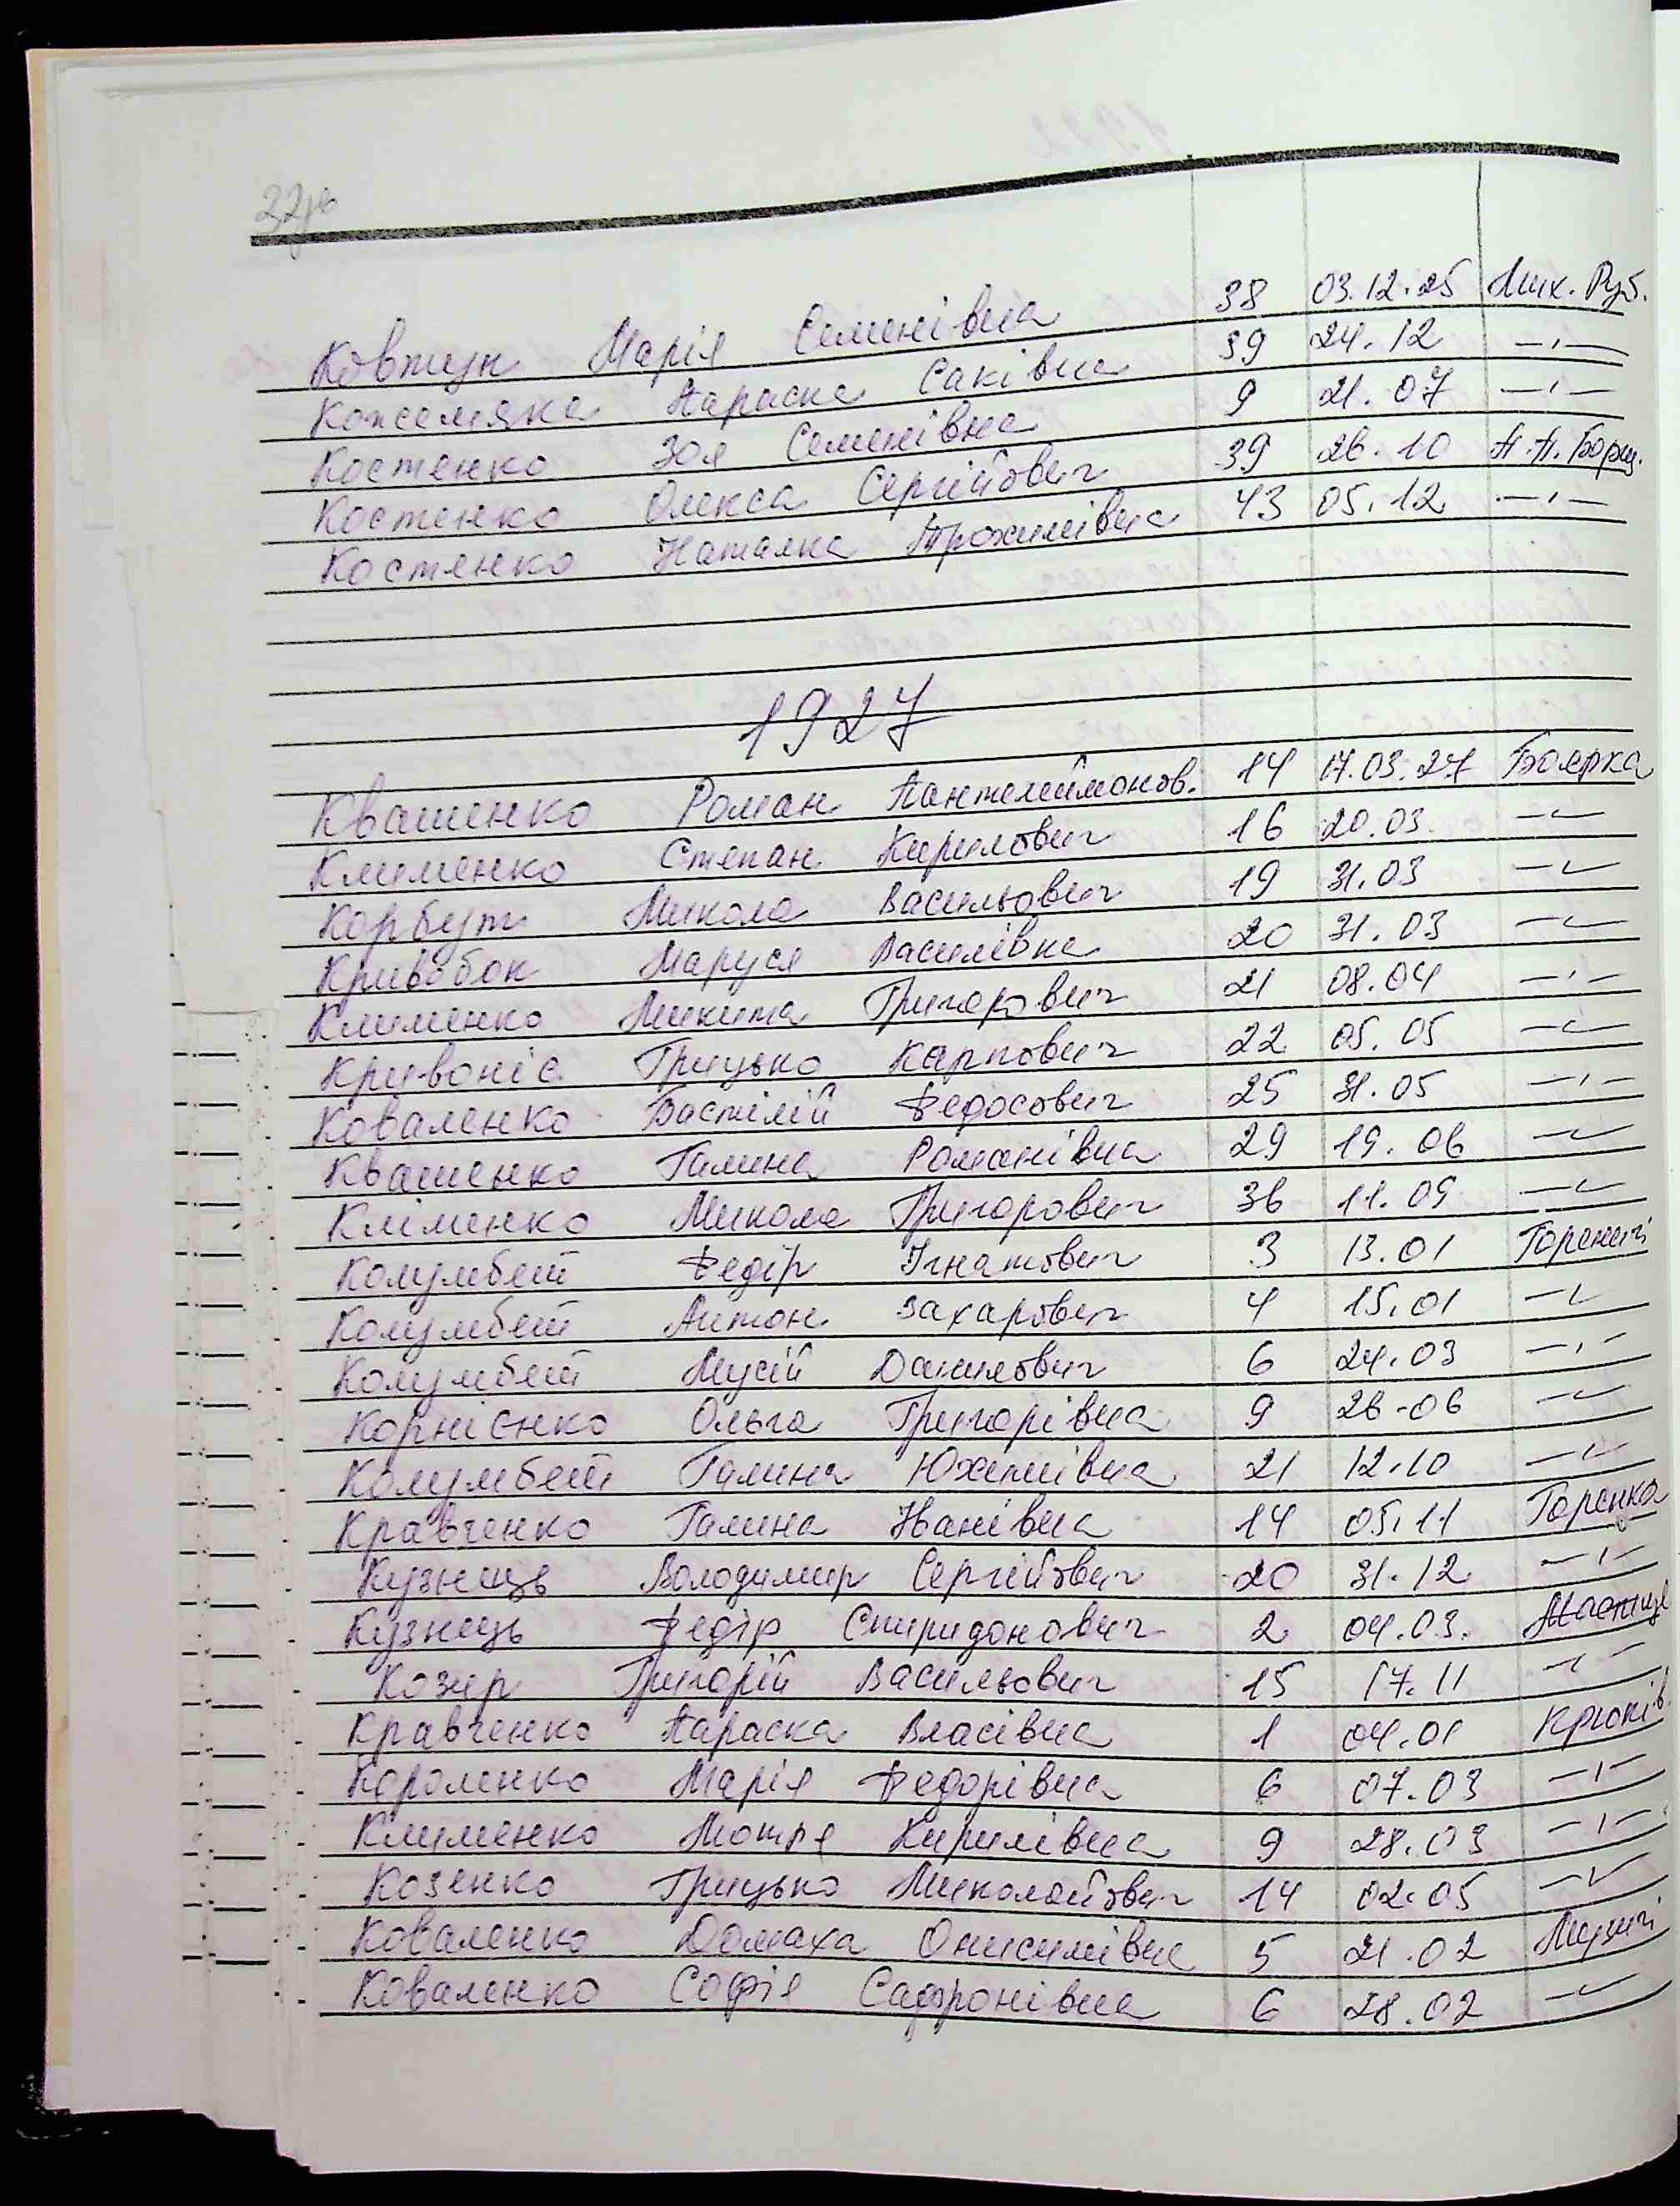 Ковтун Марія Семенівна 38 03.12.25 Мих. Руб.
Кожемяка Параска Саківна 39 24.12 —〃—
Костенко Зоя Семенівна 9 21.07 —〃—
Костенко Олекса Сергійович 39 26.10 П.П. Борщ.
Костенко Наталка Трохимівна 43 05.12 —〃—
1927
Квашенко Роман Пантелеймонов. 14 17.03.27 Боярка
Клименко Степан Кирилович 16 20.03 —〃—
Корбут Микола Васильович 19 31.03 —〃—
Кривобок Маруся Василівна 20 31.03 —〃—
Клименко Микита Григорович 21 08.04 —〃—
Кривоніс Грицько Карпович 22 05.05 —〃—
Коваленко Василій Федосович 25 31.05 —〃—
Квашенко Галина Романівна 29 19.06 —〃—
Кліменко Микола Григорович 36 11.09 —〃—
Колумбет Федір Ігнатович 3 13.01 Гореничі
Колумбет Антон Захарович 4 15.01 —〃—
Колумбет Мусій Данилович 6 24.03 —〃—
Корнієнко Ольга Григорівна 9 26-06 —〃—
Колумбет Галина Юхимівна 21 12.10 —〃—
Кравченко Галина Іванівна 14 05.11 Горенка
Кузнець Володимир Сергійович 20 31.12 —〃—
Кузнець Федір Спиридонович 2 04.03.
Козир Григорій Васильович 15 17.11 —〃—
Кравченко Параска Власівна 1 04.01 Крюків
Короленко Марія Федорівна 6 07.03 —〃—
Клименко Мотря Кирилівна 9 28.03 —〃—
Козенко Грицько Миколайович 14 02.05 —〃—
Коваленко Домаха Онисимівна 5 21.02
Коваленко Софія Сафронівна 6 28.02 —〃—